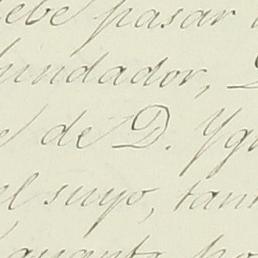 ebe pasar
undador,
de D. Yg
el suyo, tam